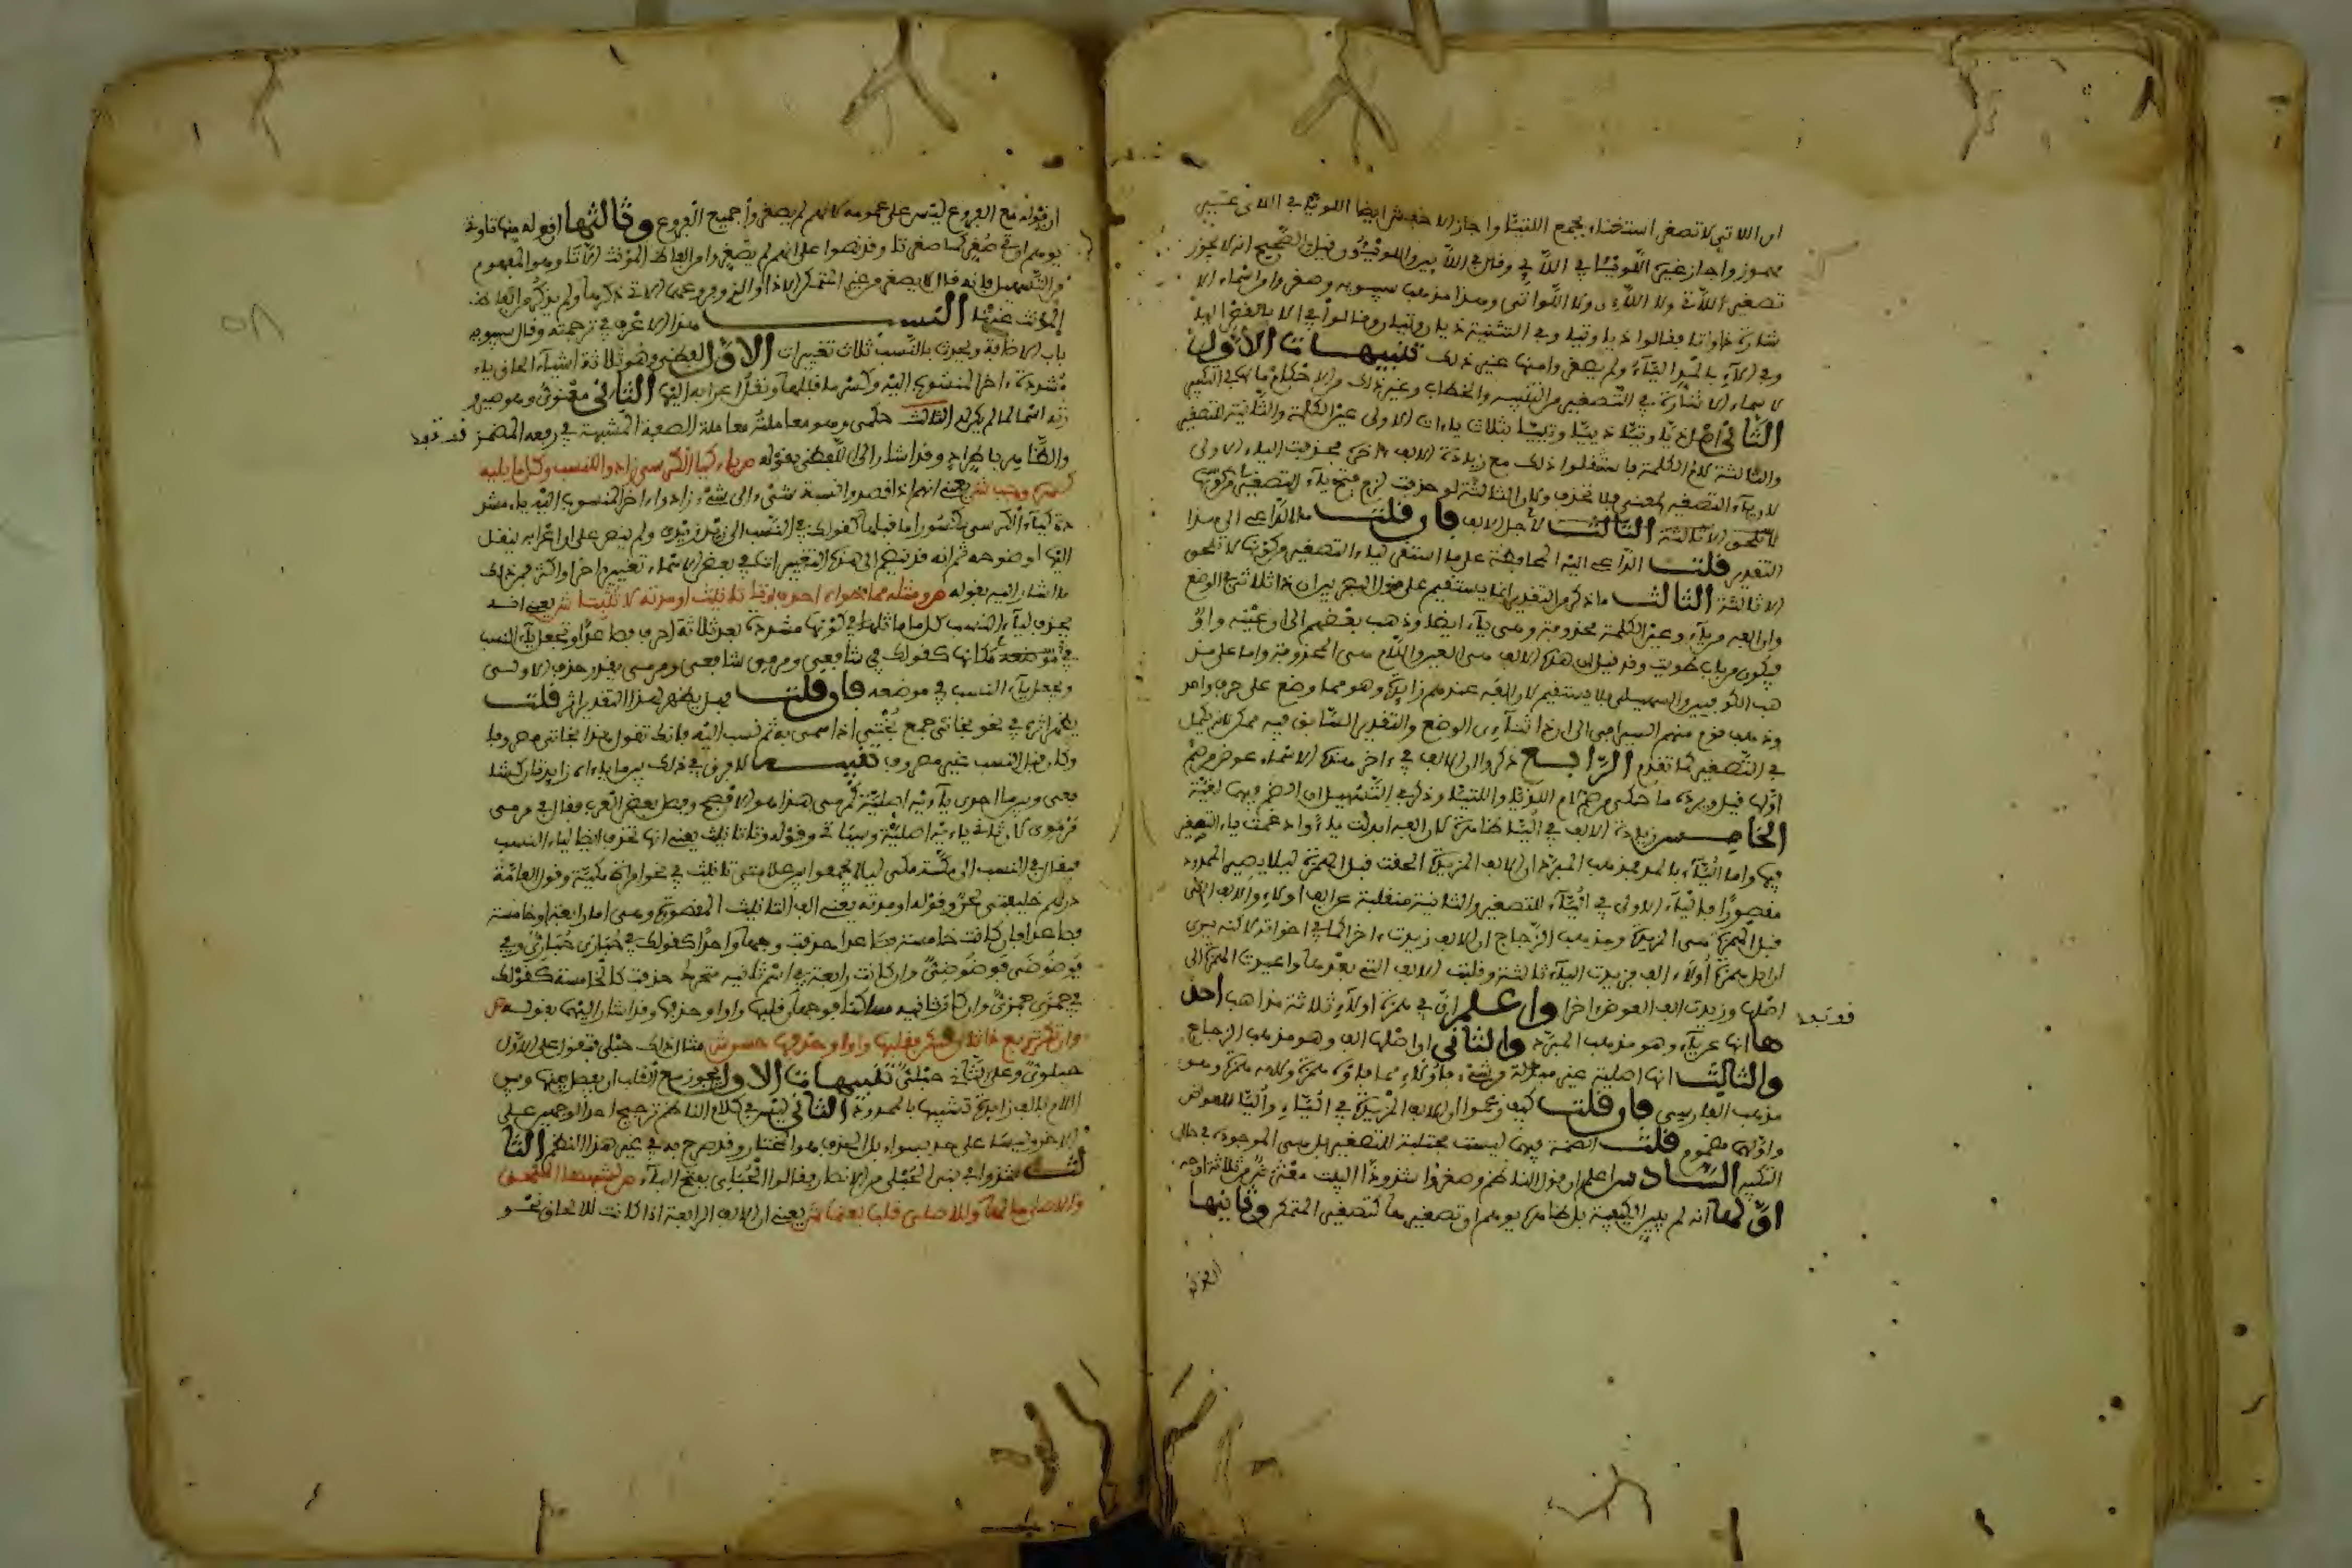 ان اللاتي لا تصغر استغناء بجمع اللتيا واجاز الاخفش ايضا اللويتا في اللاتي غير
مهموز واجاز غيره اللويئا في اللائي وفي اللائين اللويئون قيل الصحيح انه لا يجوز
تصغير اللاتي ولا اللائي ولا اللواتي وهذا مذهب سيبويه وصغروا من اسماء الا
شارة ذا وتا فقالوا ذيا وتيا وفي التثنية ذيان وتيان وقالوا في الا بالقصر اليا
وفي الاء بالمد اليّاء ولم يصغروا منها غير ذلك تنبيهات الاول
لاسماء الاشارة في التصغير من التنبيه والخطاب وغير ذلك من الاحكام ما لها في التكبير
الثاني اصل ذيا وتيا ذييا وتييا بثلاث ياءات الاولى عين الكلمة والثانية للتصغير
والثالثة لام الكلمة فاستثقلوا ذلك مع زيادة الالف اخره فحذفت الياء الاولى
لان ياء التصغير لمعنى فلا تحذف ولان الثالثة لو حذفت لزم فتح ياء التصغير
لاجل الالف فان قلت ما الداعي الى هذا
التقدير قلت الداعي اليه المحافظة على ما استقر لياء التصغير من كونها لا تلحق
الا ثالثة الثالث ما ذكر من التقدير انما يستقيم على قول البصريين ان ذا ثلاثي الوضع
وان الفه من ياء وعين الكلمة محذوفة وهي ياء ايضا وذهب بعضهم الى ان عينه واو
فيكون من باب طويت وقد قيل ان هذه الالف هي العين واللام هي المحذوفة واما على مذ
هب الكوفيين والسهيلي فلا يستقيم لان الفه عندهم زائدة وهو مما وضع على حرف واحد
وذهب قوم منهم السيرافي الى ان ذا ثنائي الوضع والتقدير السابق فيه ممكن لانه يكمل
في التصغير كما تقدم الرابع ذكروا ان الالف في ءاخر هذه الاسماء عوض من ضم
اولها قيل ويرده ما حكي من ضم لام اللذيا واللتيا وذكر في التسهيل ان الضم فيها لغية
الخامس زيادة الالف في اليا ظاهرة لان الفه ابدلت ياء وادغمت ياء التصغير
فيها واما اليّاء بالمد فمذهب المبرد ان الالف المزيدة الحقت قبل الهمزة ليلا يصير الممدود
مقصورا فالياء الاولى في اليّاء للتصغير والثانية منقلبة عن الف اولاء والالف التي
قبل الهمزة هي المزيدة ومذهب الزجاج ان الالف زيدت ءاخرا كما في اخواته لكنه يرى
ان اصل همزة اولاء الف فزيدت الياء ثالثة وقلبت الالف التي بعدها واعيدت الهمزة الى
اصلها وزيدت الف العوض اخرا واعلم ان في همزة اولاء ثلاثة مذاهب احد
ها انها عن ياء وهو مذهب المبرد والثاني ان اصلها الف وهو مذهب الزجاج
والثالث انها اصلية غير مبدلة من شيء
مذهب الفارسي فان قلت كيف زعموا ان الالف المزيدة في اليّا واليّاء للعوض
واولها مضموم قلت الضمة فيها ليست مجتلبة للتصغير بل هي الموجودة في حال
التكبير السادس اعلم ان قول الناظم وصغروا شذوذا البيت معترض من ثلاثة اوجه
اولها انه لم يبين الكيفية بل ظاهره يوهم ان تصغيرها كتصغير المتمكن وثانيها
ان قوله مع الفروع ليس على عمومه لانهم لم يصغروا جميع الفروع وثالثها ان قوله منها تا وتي
يوهم ان تي صغر كما صغر تا وقد نصوا على انهم لم يصغروا من الفاظ المؤنث الا تا وهو المفهوم
من التسهيل فانه قال لا يصغر من غير المتمكن الا ذا والذي وفروعهما الاتي ذكرها ولم يذكر من الفاظ
المؤنث غير تا النسب هذا الاعرف في ترجمته وقال سيبويه
باب الاضافة ويحدث بالنسب ثلاث تغييرات الاول لفظي وهو ثلاثة اشياء الحاق ياء
مشددة ءاخر المنسوب اليه وكسر ما قبلها ونقل اعرابه اليها الثاني معنوي وهو صيرو
رته اسما لما لم يكن له الثالث حكمي وهو معاملته معاملة الصفة المشبهة في رفعه المضمر
والظاهر باطراد وقد اشار الى اللفظي بقوله ص ياء كيا الكرسي زادوا للنسب وكل ما يليه
كسره وجب ش يعني انهم اذا قصدوا نسبة شيء الى شيء زادوا ءاخر المنسوب اليه ياء مشد
دة كياء الكرسي مكسورا ما قبلها كقولك في النسب الى زيد زيدي ولم ينص على ان اعرابه ينقل
اليها لوضوحه ثم انه قد ينضم الى هذه التغييرات في بعض الاسماء تغيير ءاخر او اكثر فمن ذلك
ما اشار اليه بقوله ص ومثله مما حواه احذف وتا تانيث او مدته لا تثبتا ش يعني انه
يحذف لياء النسب كل ما ماثلها في كونها مشددة بعد ثلاثة احرف فصاعدا وتجعل ياء النسب
في موضعه مكانها كقولك في شافعي ومرمي شافعي ومرمي يقدر حذف الاولى
ويجعل ياء النسب في موضعه فان قلت هل يظهر لهذا التقدير اثر قلت
يظهر اثره في نحو بخاتي جمع بختي اذا سمي به ثم نسب اليه فانك تقول هذا بخاتي مصروفا
وكان قبل النسب غير مصروف تنبيه لا فرق في ذلك بين ما ياءاه زايدتان كشا
فعي وبين ما احدى ياءيه اصلية كمرمي هذا هو الافصح وفصل بعض العرب فقال في مرمي
مرموي لان ثاني ياءيه اصلية وسياتي وقوله وتا تانيث يعني انها تحذف ايضا لياء النسب
فيقال في النسب الى مكة مكي ليلا يجمعوا بين علامتي تانيث في نحو امراة مكية وقول العامة
درهم خليفتي لحن وقوله او مدته يعني الف التانيث المقصورة وهي اما رابعة او خامسة
فصاعدا فان كانت خامسة فصاعدا حذفت وجها واحدا كقولك في حبارى حباري وفي
فوضوضى فوضوضي وان كانت رابعة في اسم ثانيه متحرك حذفت كالخامسة كقولك
في جمزى جمزي وان كان ثانيه ساكنا فوجهان قلبها واوا وحذفها وقد اشار اليهما بقوله ص
وان تكن تربع ذا ثان سكن فقلبها واوا وحذفها حسن ش مثال ذلك حبلى فتقول على الاول
حبلوي وعلى الثاني حبلي تنبيهات الاول يجوز مع القلب ان يفصل بينها وبين
اللام بالف زايدة تشبيها بالممدودة الثاني ليس في كلام الناظم ترجيح احد الوجهين على
الاخر وليسا على حد سواء بل الحذف هو المختار وقد صرح به في غير هذا النظم الثا
لث شذوا في بني الحبلى من الانصار فقالوا الحبلي بفتح الباء ص لشبهها الملحق
والاصلي ما لها وللاصلي قلب يعتمى ش يعني ان الالف الرابعة اذا كانت للالحاق نحو